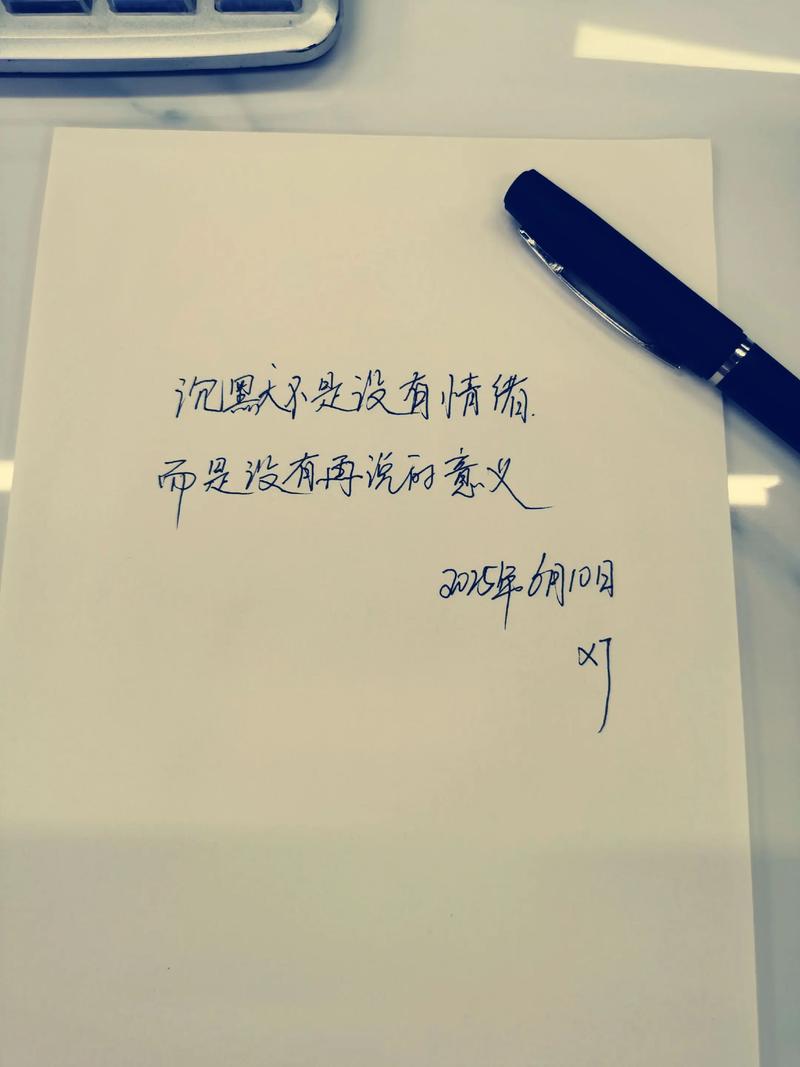 沉默不是没有情绪.
而是没有再说的意义
2025年6月10日